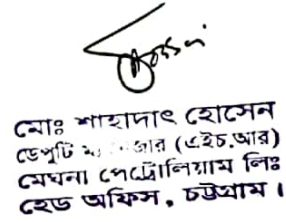 মোঃ শাহাদাৎ হোসেন
ডেপুটি (এইচ.আর)
মেঘনা পেট্রোলিয়াম লিঃ
হেড অফিস, চট্টগ্রাম।